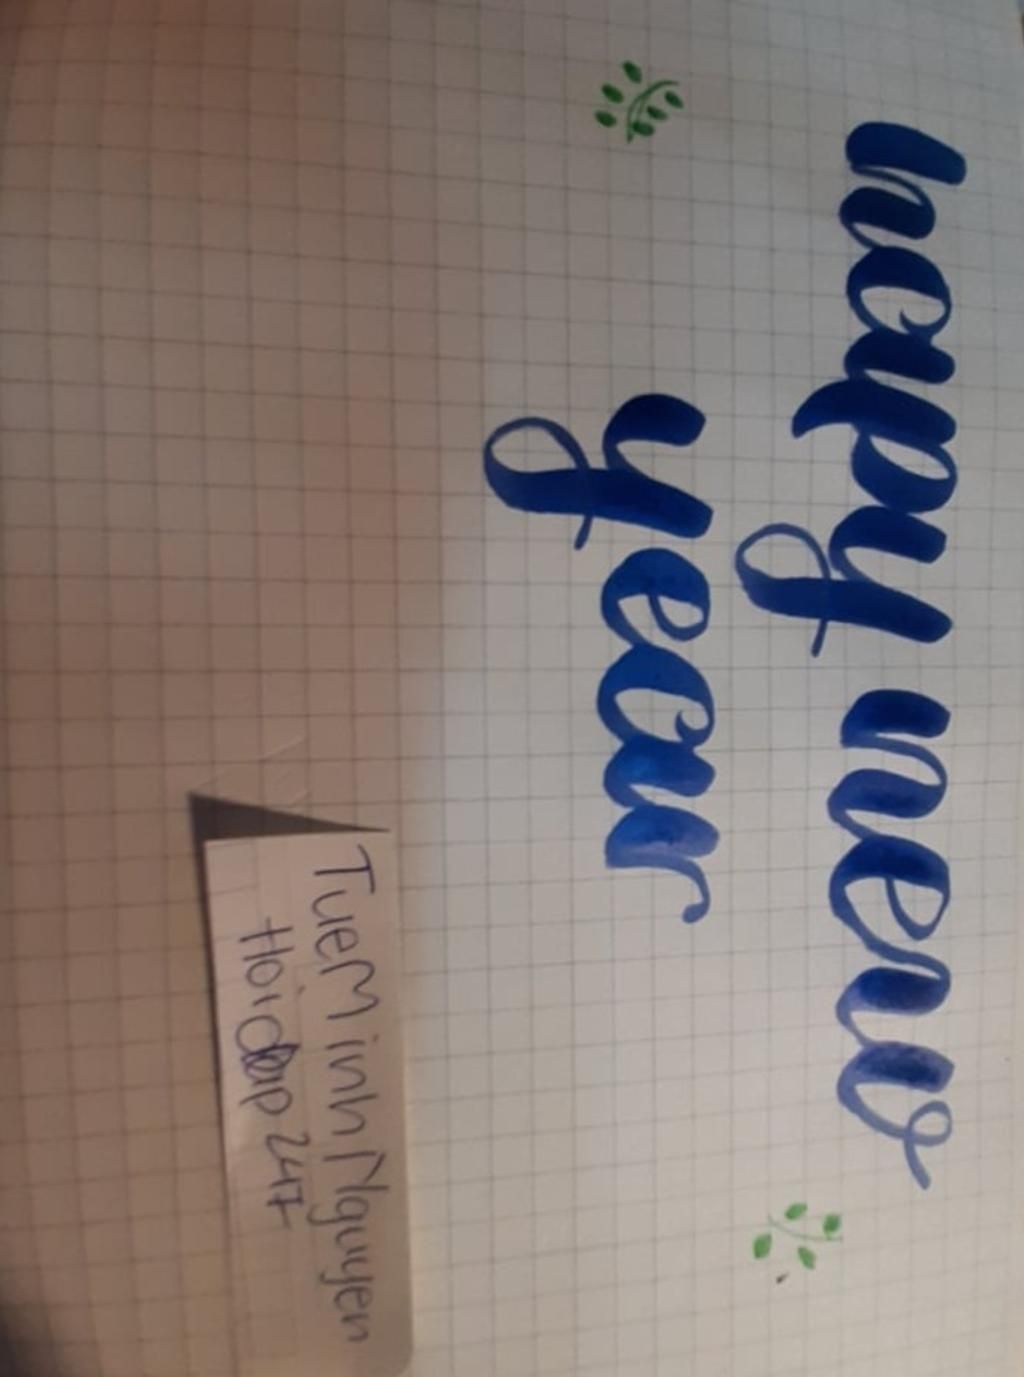 hapy new
year
TueMinhNguyen
Hoidap247